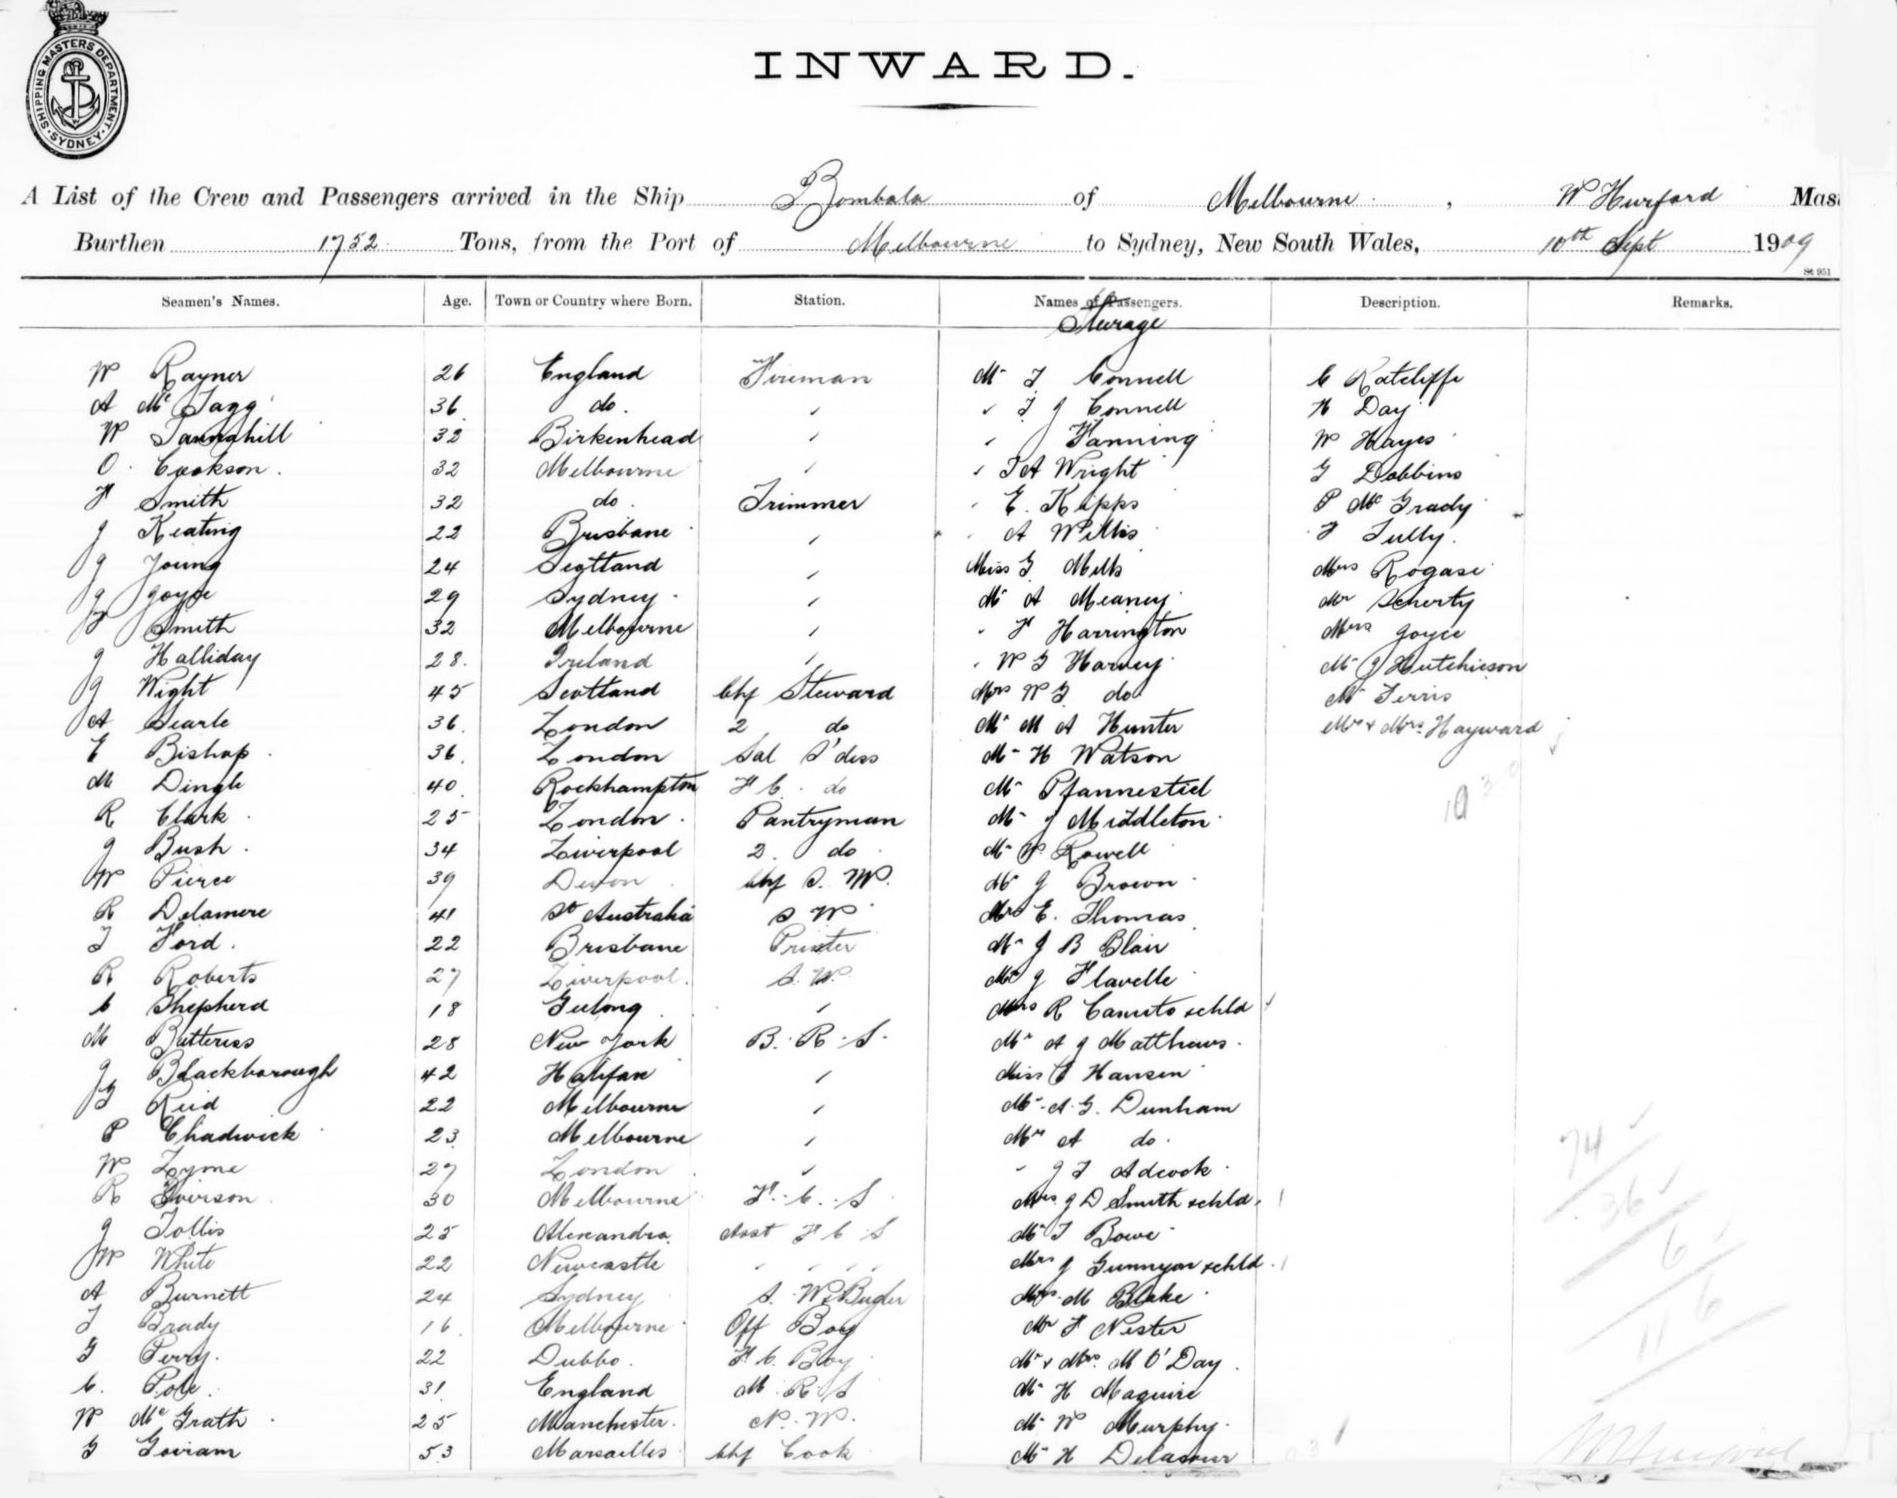 SHIPPING MASTERS DEPARTMENT
SYDNEY
INWARD.
A List of the Crew and Passengers arrived in the Ship Bombala of Melbourne, W Hurford Mas
Burthen 1752 Tons, from the Port of Melbourne to Sydney, New South Wales, 10th Sept 1909
St 951
Seamen's Names. Age. Town or Country where Born. Station. Names of Passengers. Description. Remarks.
Steerage
W Rayner 26 England Fireman Mr T Connell C Ratcliffe
A Mc Tagg 36 do. " T J Connell H Day
W Tannahill 32 Birkenhead " " J Fanning W Hayes
O. Cookson. 32 Melbourne " " T A Wright G Dobbins
H Smith 32 do. Trimmer " E. Kipps P Mc Grady
J Keating 22 Brisbane " " A Willis F Tully.
J Young 24 Scotland " Miss G Mells Mrs Rogasi
J Joyce 29 Sydney " Mr A Meaney Mr
F Smith 32 Melbourne " " H Harrington Mrs Joyce
J Halliday 28. Ireland " " W G Harvey Mr J Hutchieson
J Wight 45 Scotland Chf Steward Mrs W G do Mr Ferris
A Searle 36. London 2 do Mr M A Hunter Mr & Mrs Hayward
E Bishop. 36. London Sal S'dess Mr H Watson
M Dingle 40. Rockhampton F C. do Mr Pfannestiel
R Clark. 25 London. Pantryman Mr J Middleton
J Bush. 34 Liverpool 2. do Mr P Rowell
W Pierce 39 Devon Chf S. W. Mr J Brown
R Delamere 41 St Australia S W Mrs E. Thomas
T Ford. 22 Brisbane Printer Mr J B Blair
R Roberts 27 Liverpool. S. W. Mr J Flavelle
C Shepherd 18 Geelong " Mrs R Canuto & chld
M Butteriss 28 New York B. R. S. Mr A J Matthews.
J Blackborough 42 Halifax " Miss C Hansen
G Reid 22 Melbourne " Mr A. G. Dunham
P Chadwick 23 Melbourne " Mrs A do.
W Lyme 27 London " " J T Adcock
R Iverson 30 Melbourne F. C. S Mrs J D Smith & chld.
J Tollis 25 Alexandra Asst F C S Mr T Bowe
W White 22 Newcastle " " " " Mrs J Gunnyon & chld.
A Burnett 24 Sydney S. W & Bugler Mrs M Blake
T Brady 16. Melbourne Off Boy Mr F Nester
G Perry. 22 Dubbo. F C. Boy Mr & Mrs. M O'Day.
C. Pole. 31 England M. R. S Mr H Maguire
W Mc Grath 25 Manchester. N. W. Mr W Murphy
G Goiram 53 Marsailles Chf Cook Mr H Delasour
74
36
6
6
11